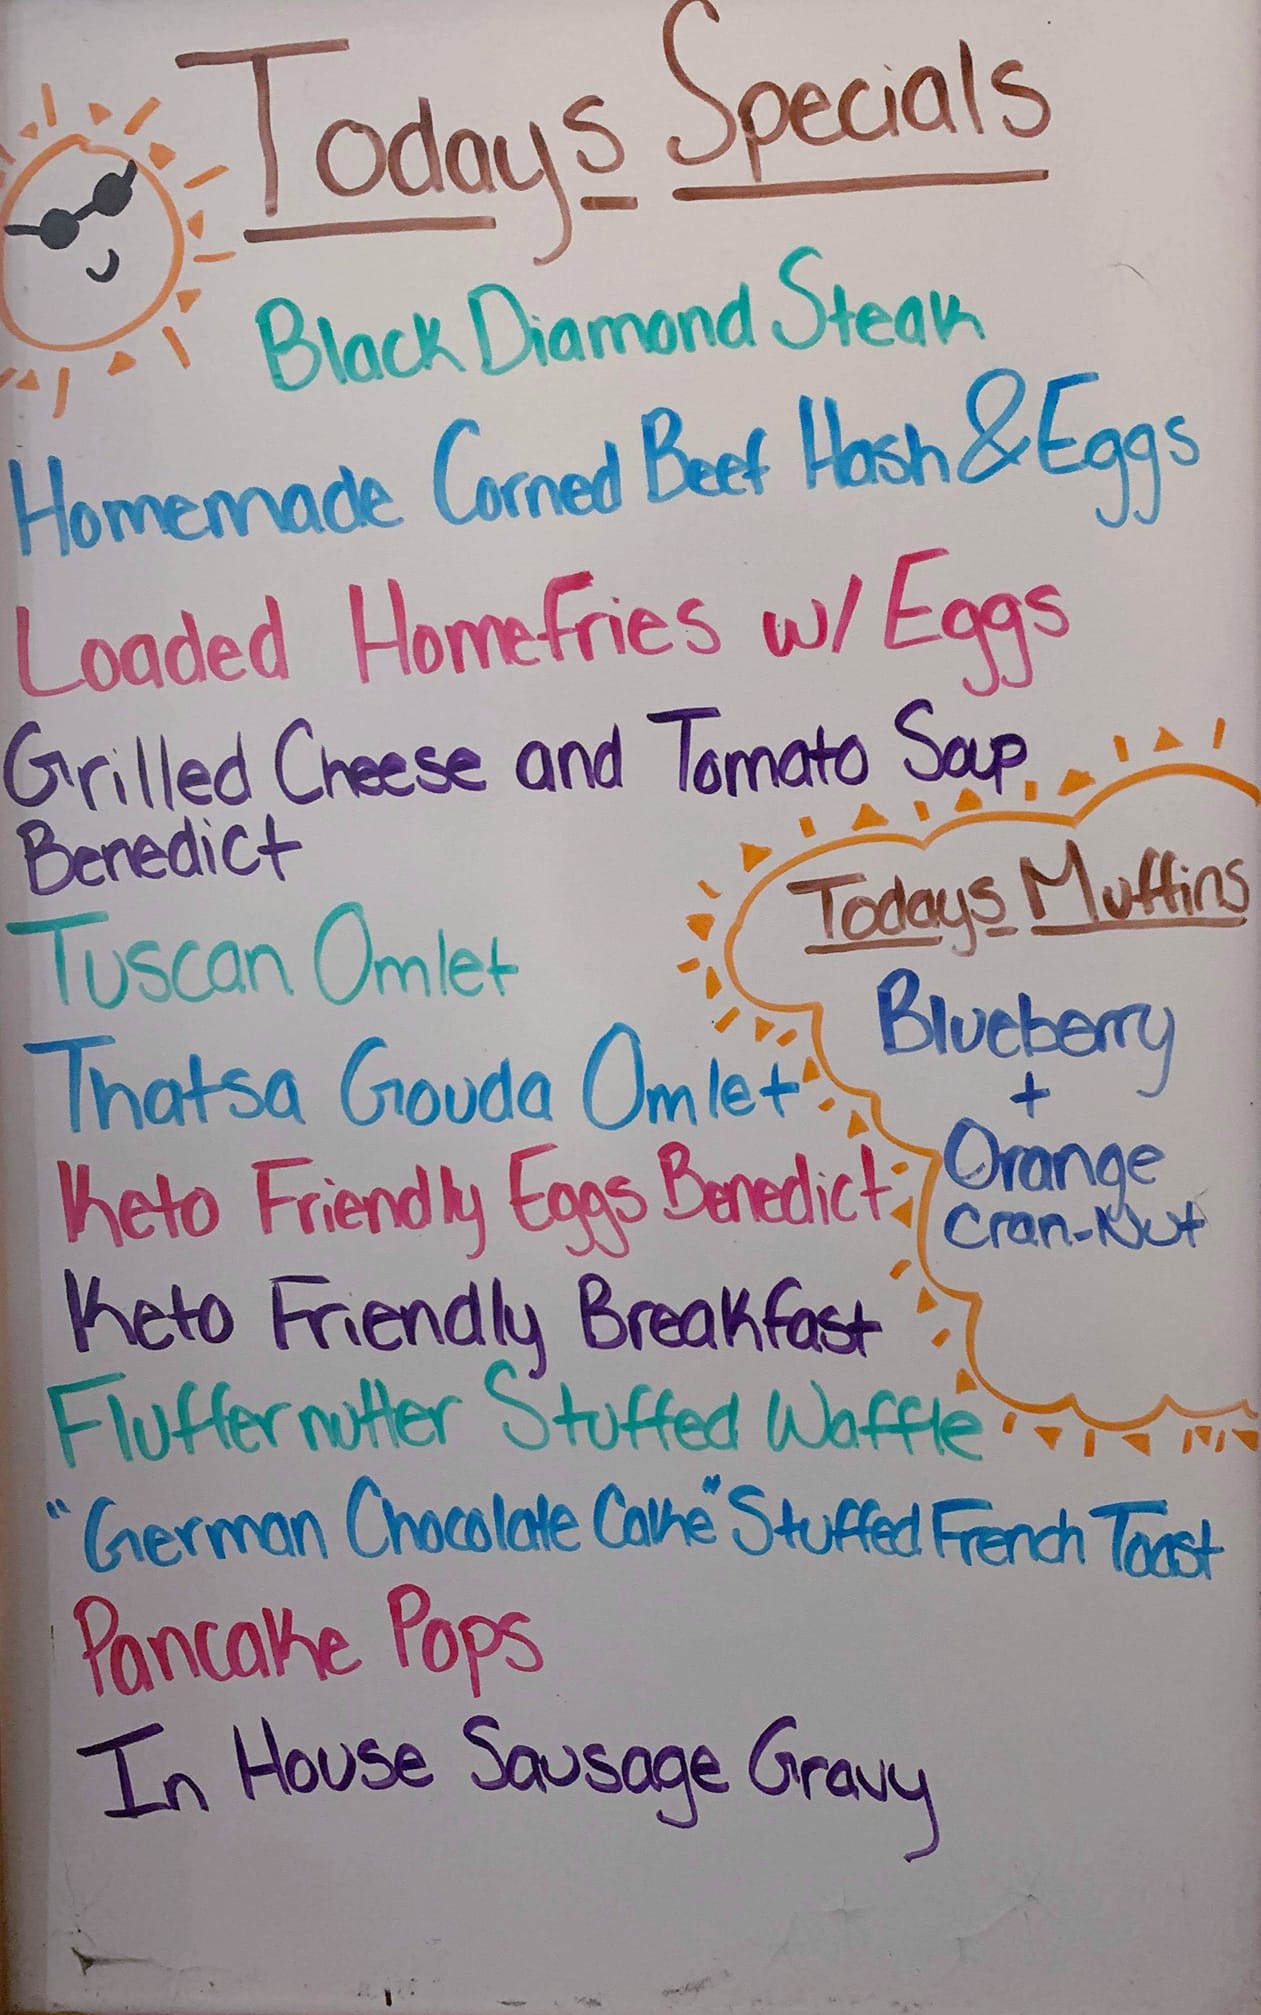 Todays Specials
Black Diamond Steak
Homemade Corned Beef Hash & Eggs
Loaded Homefries w/ Eggs
Grilled Cheese and Tomato Soup
Benedict
Tuscan Omlet
Thatsa Gouda Omlet
Keto Friendly Eggs Benedict
Keto Friendly Breakfast
Fluffernutter Stuffed Waffle
"German Chocolate Cake" Stuffed French Toast
Pancake Pops
In House Sausage Gravy
Todays Muffins
Blueberry
+
Orange
Cran-Nut